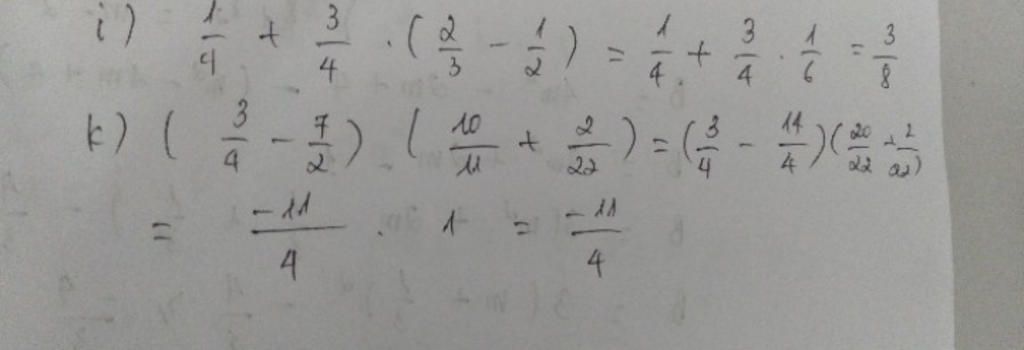 i) 1/4 + 3/4 . (2/3 - 1/2) = 1/4 + 3/4 . 1/6 = 3/8
k) (3/4 - 7/2) (10/11 + 2/22) = (3/4 - 14/4)(20/22 + 2/22)
= -11/4 . 1 = -11/4